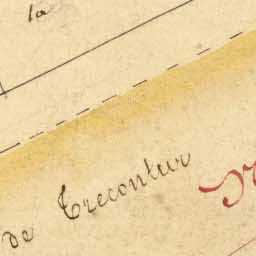 la
de Trecontur